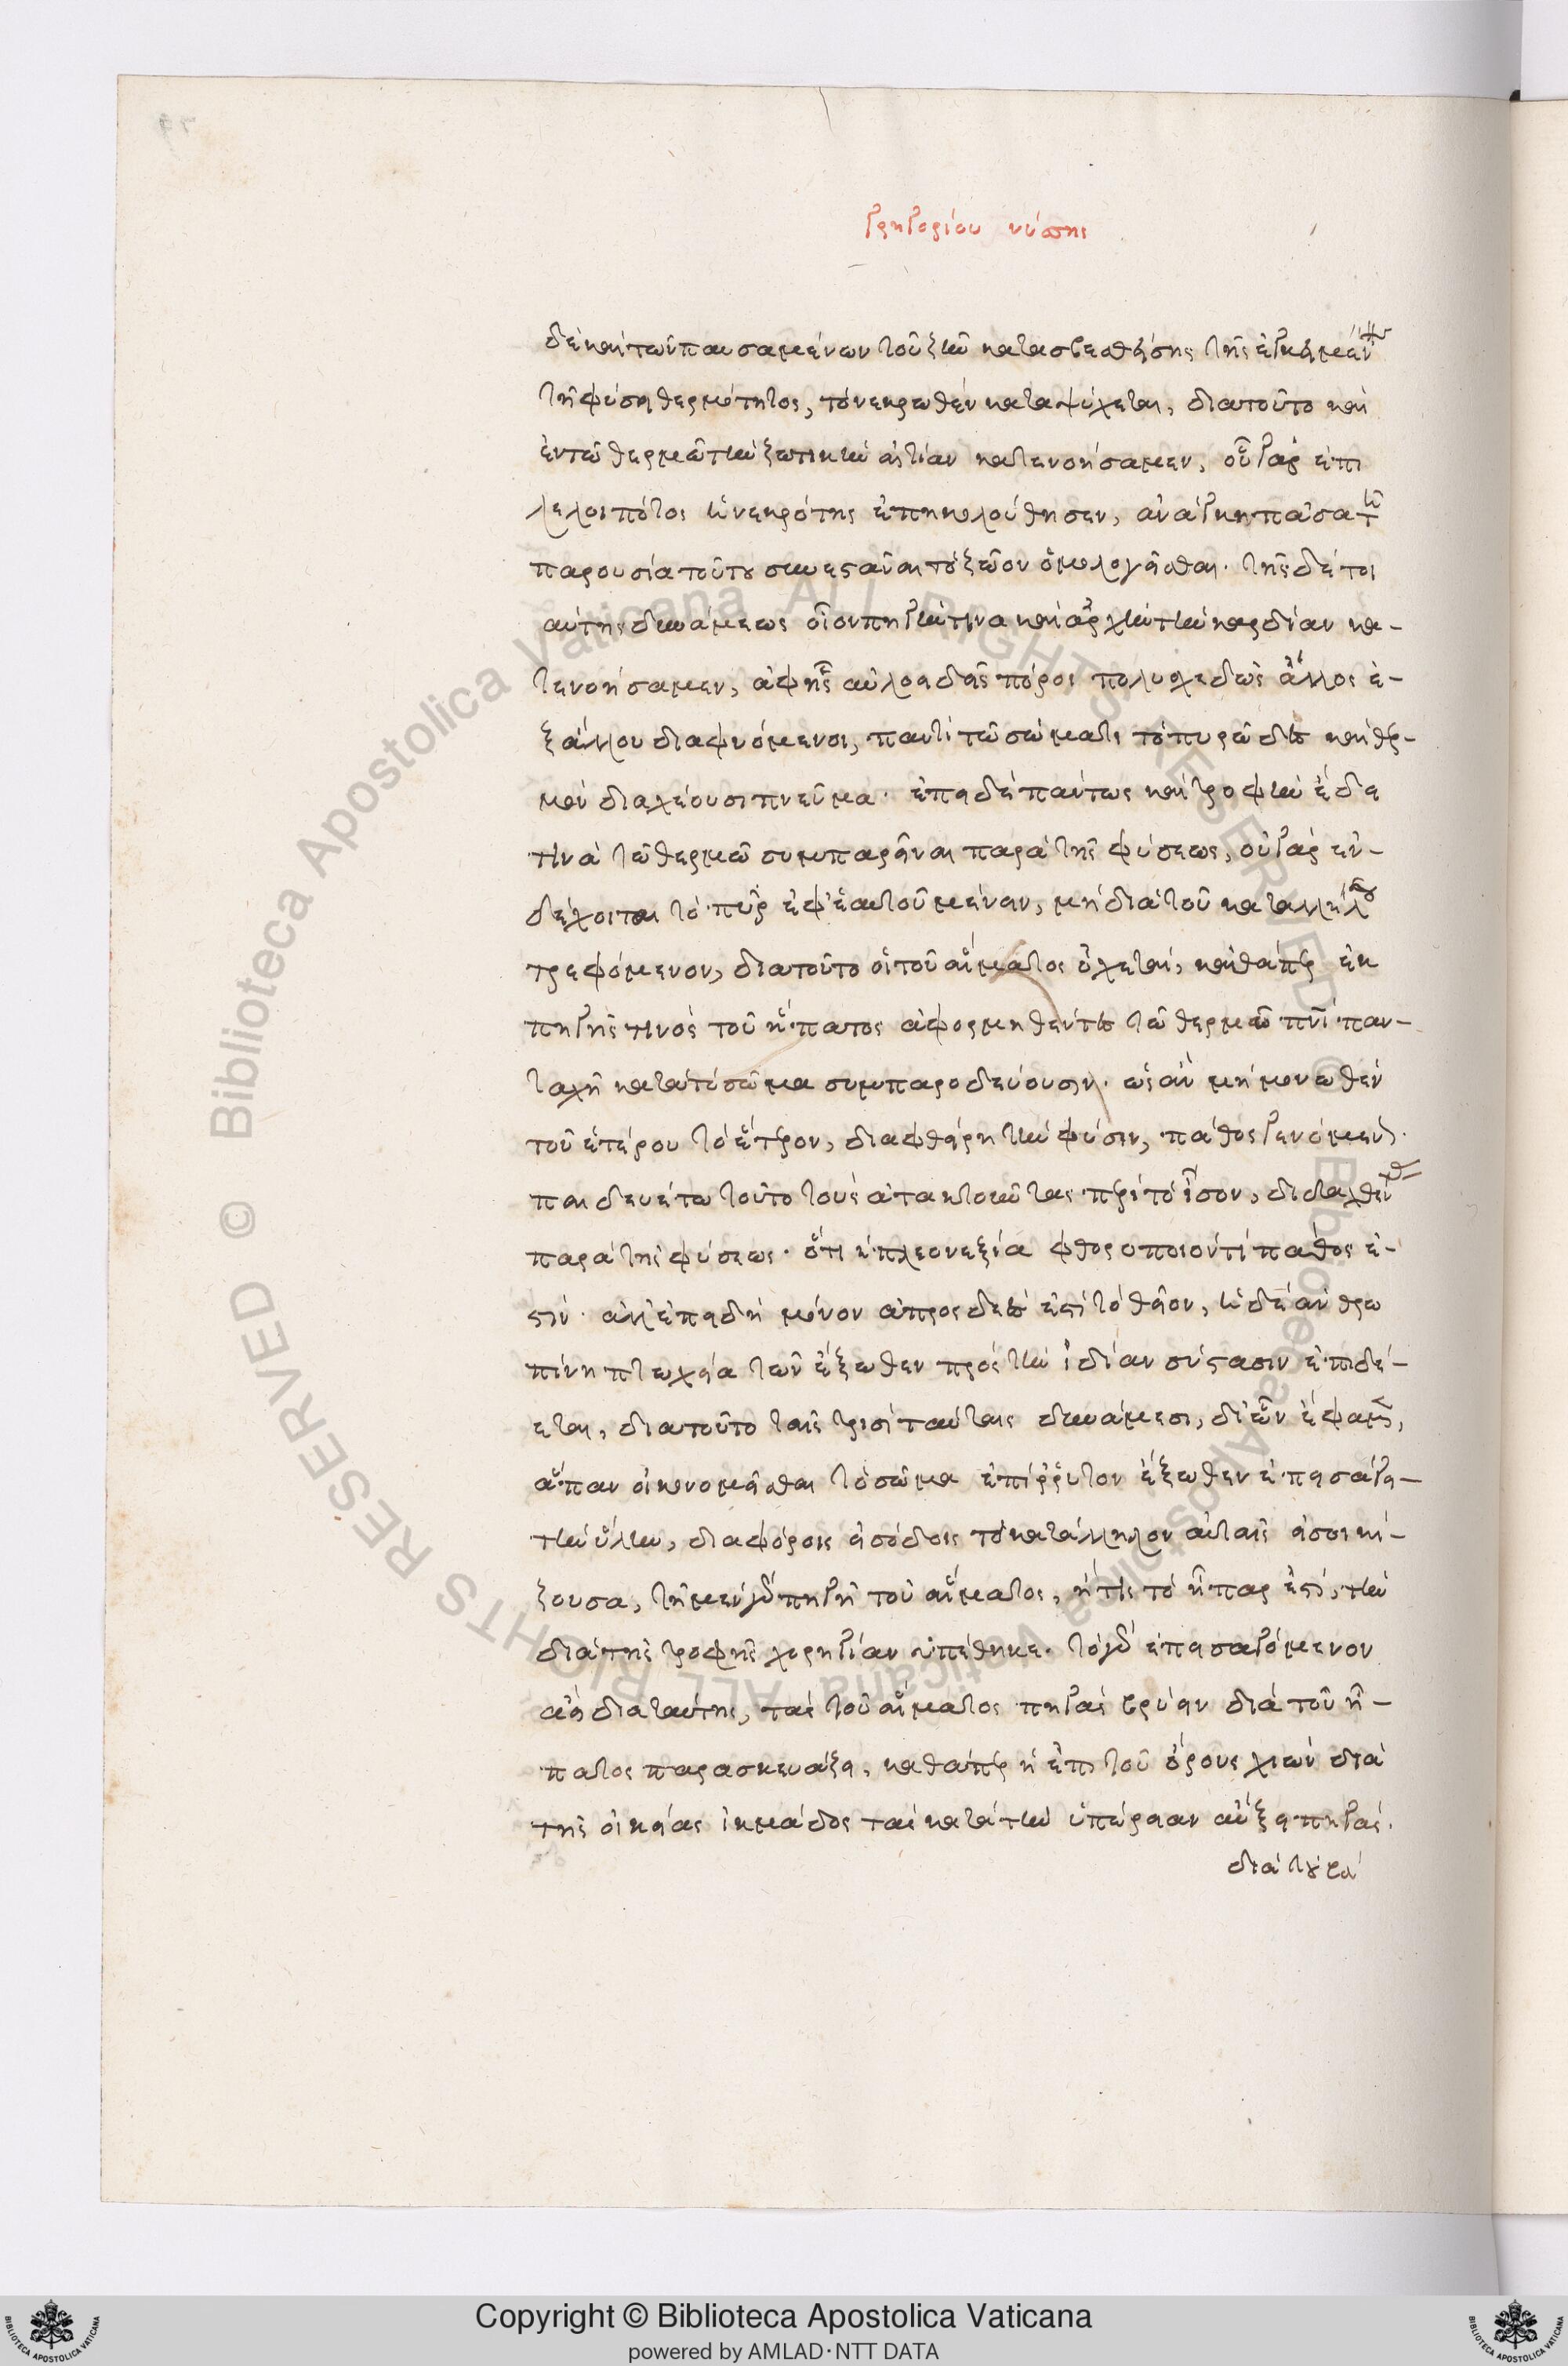 γρηγορίου νύσσης
δὲ καὶ τῶν παυσαμένων τοῦ ζῆν κατασβεσθείσης τῆς ἐγκειμένης
τῇ φύσει θερμότητος, τὸ νεκρωθὲν καταψύχεται, διατοῦτο καὶ
ἐν τῶ θερμῶ τὴν ζωτικὴν αἰτίαν κατενοήσαμεν, οὗ γὰρ ἐπι
λελοιπότος ἡ νεκρότης ἐπηκολούθησεν, ἀνάγκη πᾶσα τῆ
παρουσία τούτου συνεστᾶναι τὸ ζῶον ὁμολογεῖσθαι. τῆς δὲ τοι
αύτης δυνάμεως οἷον πηγήν τινα καὶ ἀρχὴν τὴν καρδίαν κα-
τενοήσαμεν, ἀφ' ἧς αὐλοειδεῖς πόροι πολυσχεδῶς ἄλλος ἐ-
ξ ἄλλου διαφυόμενοι, παντὶ τῶ σώματι τὸ πυρῶδες καὶ θερ-
μὸν διαχέουσι πνεῦμα. ἐπεὶ δὲ πάντως καὶ τροφὴν ἔδει
τινὰ τῶ θερμῶ συμπαρεῖναι παρὰ τῆς φύσεως, οὐ γὰρ ἐν-
δέχοιται τὸ πῦρ ἐφ' ἑαυτοῦ μένειν, μὴ διὰ τοῦ καταλλήλου
τρεφόμενον, διατοῦτο οἱ τοῦ αἵματος ὀχετοί, καθάπερ ἐκ
πηγῆς τινὸς τοῦ ἥπατος ἀφορμηθέντες τῶ θερμῶ πνι παν-
ταχῆ κατὰ τὸ σῶμα συμπαροδεύουσιν. ὡς ἂν μὴ μονωθὲν
τοῦ ἑτέρου τὸ ἕτερον, διαφθείρη τὴν φύσιν, πάθος γενόμενον.
παιδευέτω τοῦτο τοὺς ἀτακτοῦντας περὶ τὸ ἶσον, διδαχθέντας
παρὰ τῆς φύσεως. ὅτι ἡ πλεονεξία φθοροποιόν τι πάθος ἐ-
στίν. ἀλλ' ἐπειδὴ μόνον ἀπροσδεές ἐστι τὸ θεῖον, ἡ δὲ ἀνθρω
πίνη πτωχεία τῶν ἔξωθεν πρὸς τὴν ἰδίαν σύστασιν ἐπιδέ-
εται, διατοῦτο ταῖς τρισὶ ταύταις δυνάμεσι, δι' ὧν ἔφαμεν,
ἅπαν οἰκονομεῖσθαι τὸ σῶμα ἐπίρρυτον ἔξωθεν ἐπεισάγει
τὴν ὕλην, διαφόροις εἰσόδοις τὸ κατάλληλον αὐταῖς εἰσοικί-
ζουσα, τῆ μὲν γὰρ πηγῆ τοῦ αἵματος, ἥτις τὸ ἧπαρ ἐστί, τὴν
διὰ τῆς τροφῆς χορηγίαν ὑπέθηκε. τὸ γὰρ ἐπεισαγόμενον
ἀεὶ διὰ ταύτης, τὰς τοῦ αἵματος πηγὰς βρύειν διὰ τοῦ ἥ-
πατος παρασκευάζει, καθάπερ ἡ ἐπὶ τοῦ ὄρους χιὼν διὰ
τῆς οἰκείας ἰκμάδος τὰς κατὰ τὴν ὑπώρειαν αὔξει πηγάς.
διὰ τοῦ βά